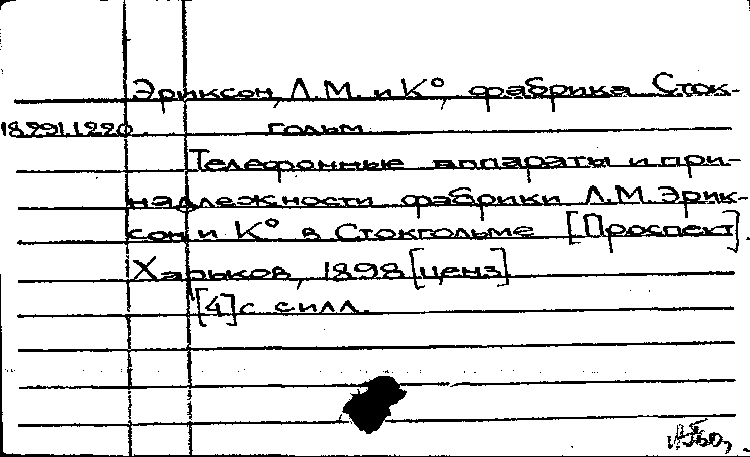 Эриксон, Л.М. и К°, фабрика Сток-
18.291.1.220. гольм
Телефонные аппараты и при-
надлежности фабрики Л.М. Эрик-
сон и К° в Стокгольме [Проспект].
Харьков, 1898 [ценз]
[4] с с илл.